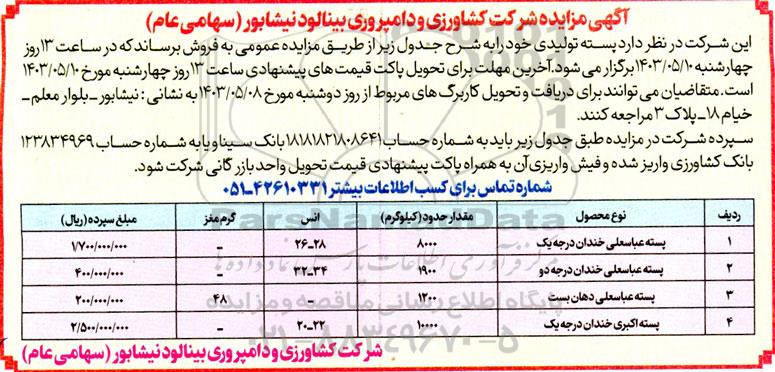 آگهی مزایده شرکت کشاورزی و دامپروری بینالود نیشابور (سهامی عام)
این شرکت در نظر دارد پسته تولیدی خود را به شرح جدول زیر از طریق مزایده عمومی به فروش برساند که در ساعت ۱۳ روز
چهارشنبه ۱۴۰۳/۰۵/۱۰ برگزار می شود. آخرین مهلت برای تحویل پاکت قیمت های پیشنهادی ساعت ۱۳ روز چهارشنبه مورخ ۱۴۰۳/۰۵/۱۰
است. متقاضیان می توانند برای دریافت و تحویل کاربرگ های مربوط از روز دوشنبه مورخ ۱۴۰۳/۰۵/۰۸ به نشانی : نیشابور ـ بلوار معلم ـ
خیام ۱۸ـ پلاک ۳ مراجعه کنند.
سپرده شرکت در مزایده طبق جدول زیر باید به شماره حساب ۱۸۱۸۱۸۲۱۸۰۸۶۴۱ بانک سینا و یا به شماره حساب ۱۲۳۸۳۴۹۶۹
بانک کشاورزی واریز شده و فیش واریزی آن به همراه پاکت پیشنهادی قیمت تحویل واحد بازرگانی شرکت شود.
شماره تماس برای کسب اطلاعات بیشتر ۴۲۶۱۰۳۳۱ـ۰۵۱
ردیف نوع محصول مقدار حدود (کیلوگرم) انس گرم مغز مبلغ سپرده (ریال)
۱ پسته عباسعلی خندان درجه یک ۸۰۰۰ ۲۸ـ۲۶ ـ ۱/۷۰۰/۰۰۰/۰۰۰
۲ پسته عباسعلی خندان درجه دو ۱۹۰۰ ۳۴ـ۳۲ ـ ۴۰۰/۰۰۰/۰۰۰
۳ پسته عباسعلی دهان بست ۱۲۰۰ ـ ۴۸ ۲۰۰/۰۰۰/۰۰۰
۴ پسته اکبری خندان درجه یک ۱۰۰۰۰ ۲۲ـ۲۰ ـ ۲/۵۰۰/۰۰۰/۰۰۰
شرکت کشاورزی و دامپروری بینالود نیشابور (سهامی عام)
ParsNamadData
مرکز فرآوری اطلاعات پارس نماد داده ها
پایگاه اطلاع رسانی مناقصه و مزایده
۰۲۱-۸۸۳۴۹۶۷۰-۵